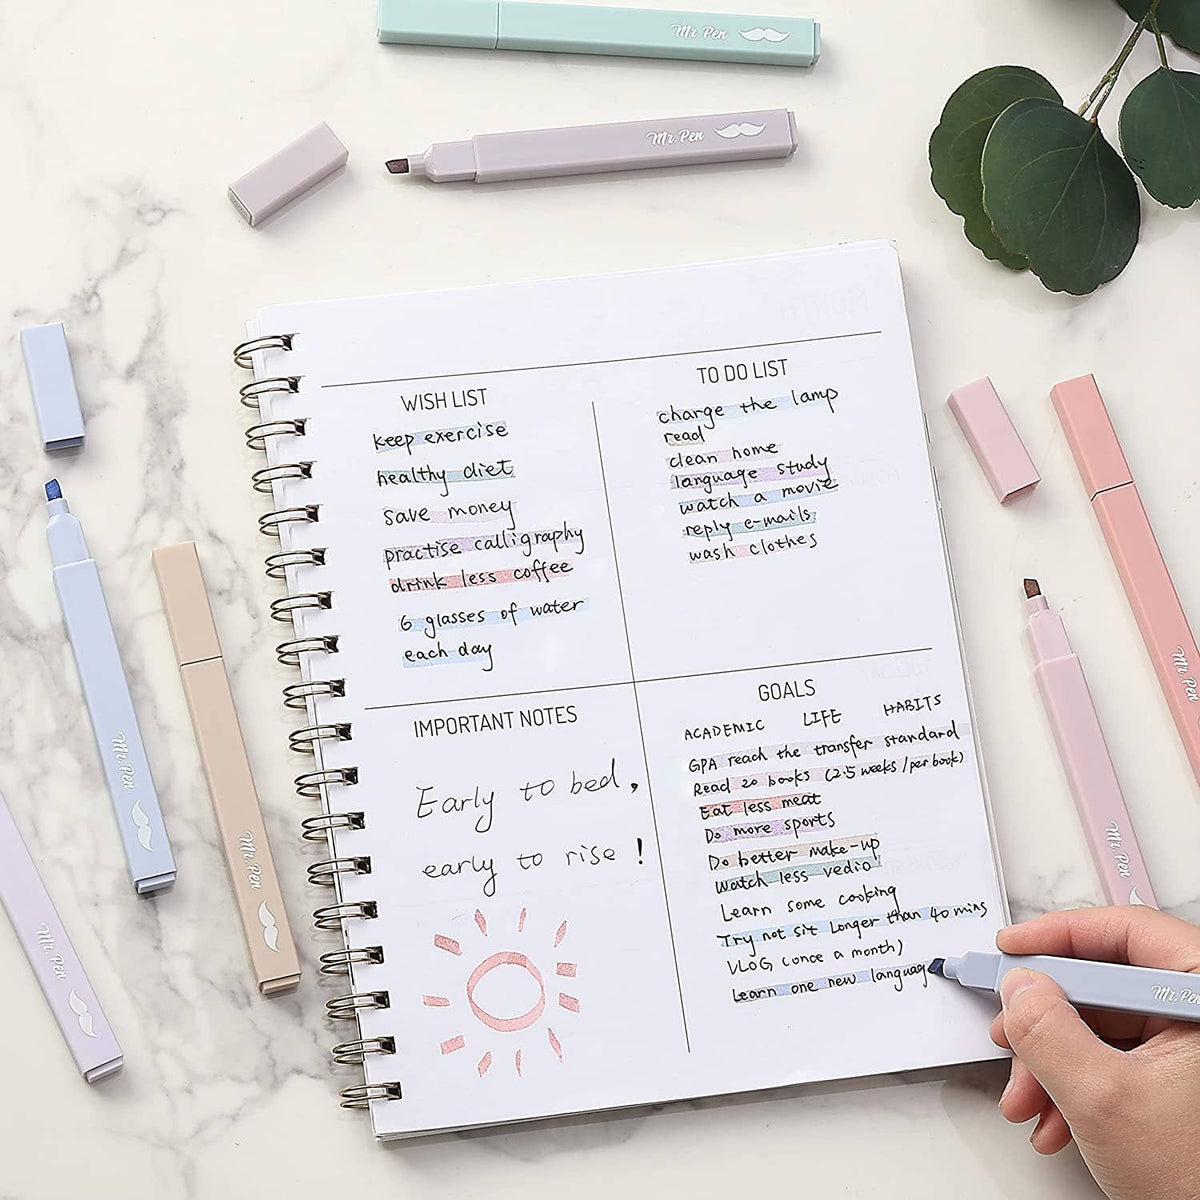 Mr. Pen
Mr. Pen
WISH LIST
keep exercise
healthy diet
save money
practise calligraphy
drink less coffee
6 glasses of water
each day
TO DO LIST
charge the lamp
read
clean home
language study
watch a movie
reply e-mails
wash clothes
IMPORTANT NOTES
Early to bed,
early to rise!
GOALS
ACADEMIC LIFE HABITS
GPA reach the transfer standard
Read 20 books (2.5 weeks/per book)
Eat less meat
Do more sports
Do better make-up
Watch less vedio!
Learn some cooking
Try not sit longer than 40 mins
VLOG (once a month)
Learn one new languag
Mr. Pen
Mr. Pen
Mr. Pen
Mr. Pen
Mr. Pen
Mr. Pen